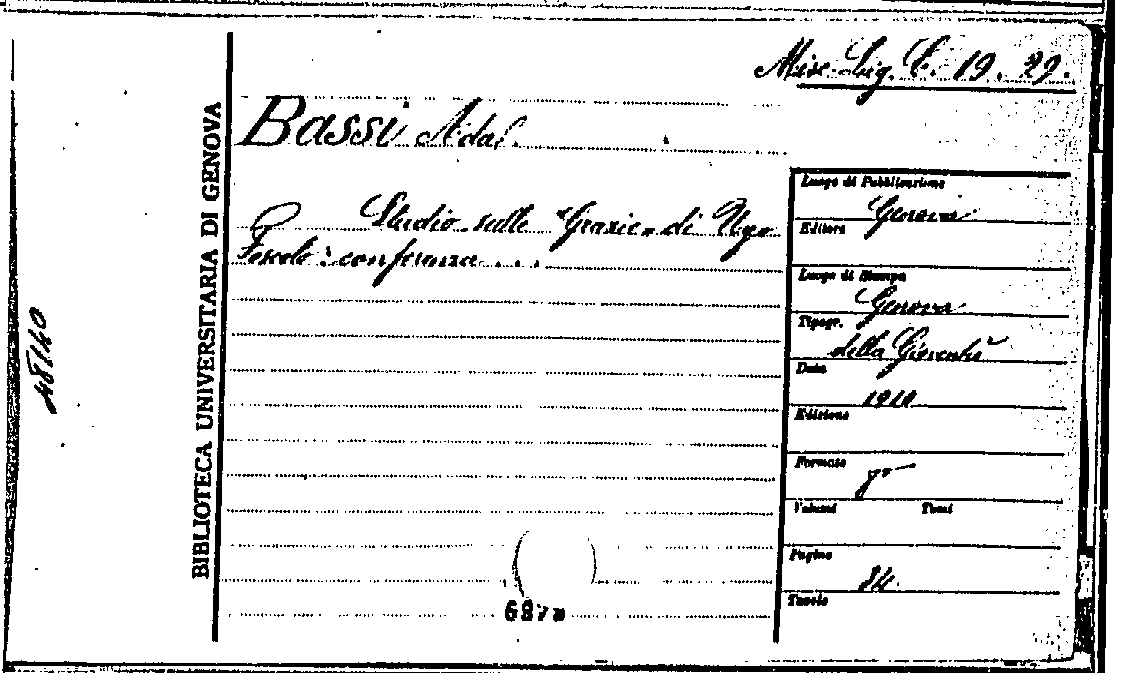 Misc. Lig. C. 19. 29.
Bassi Adal.
Studio sulle "Grazie" di Ugo
Foscolo: conferenza . . .
BIBLIOTECA UNIVERSITARIA DI GENOVA
48140
Luogo di Pubblicazione
Genova
Editore
Luogo di Stampa
Genova
Tipogr.
della Gioventù
Data
1910
Edizione
Formato
8°
Volumi Tomi
Pagine
34
Tavole